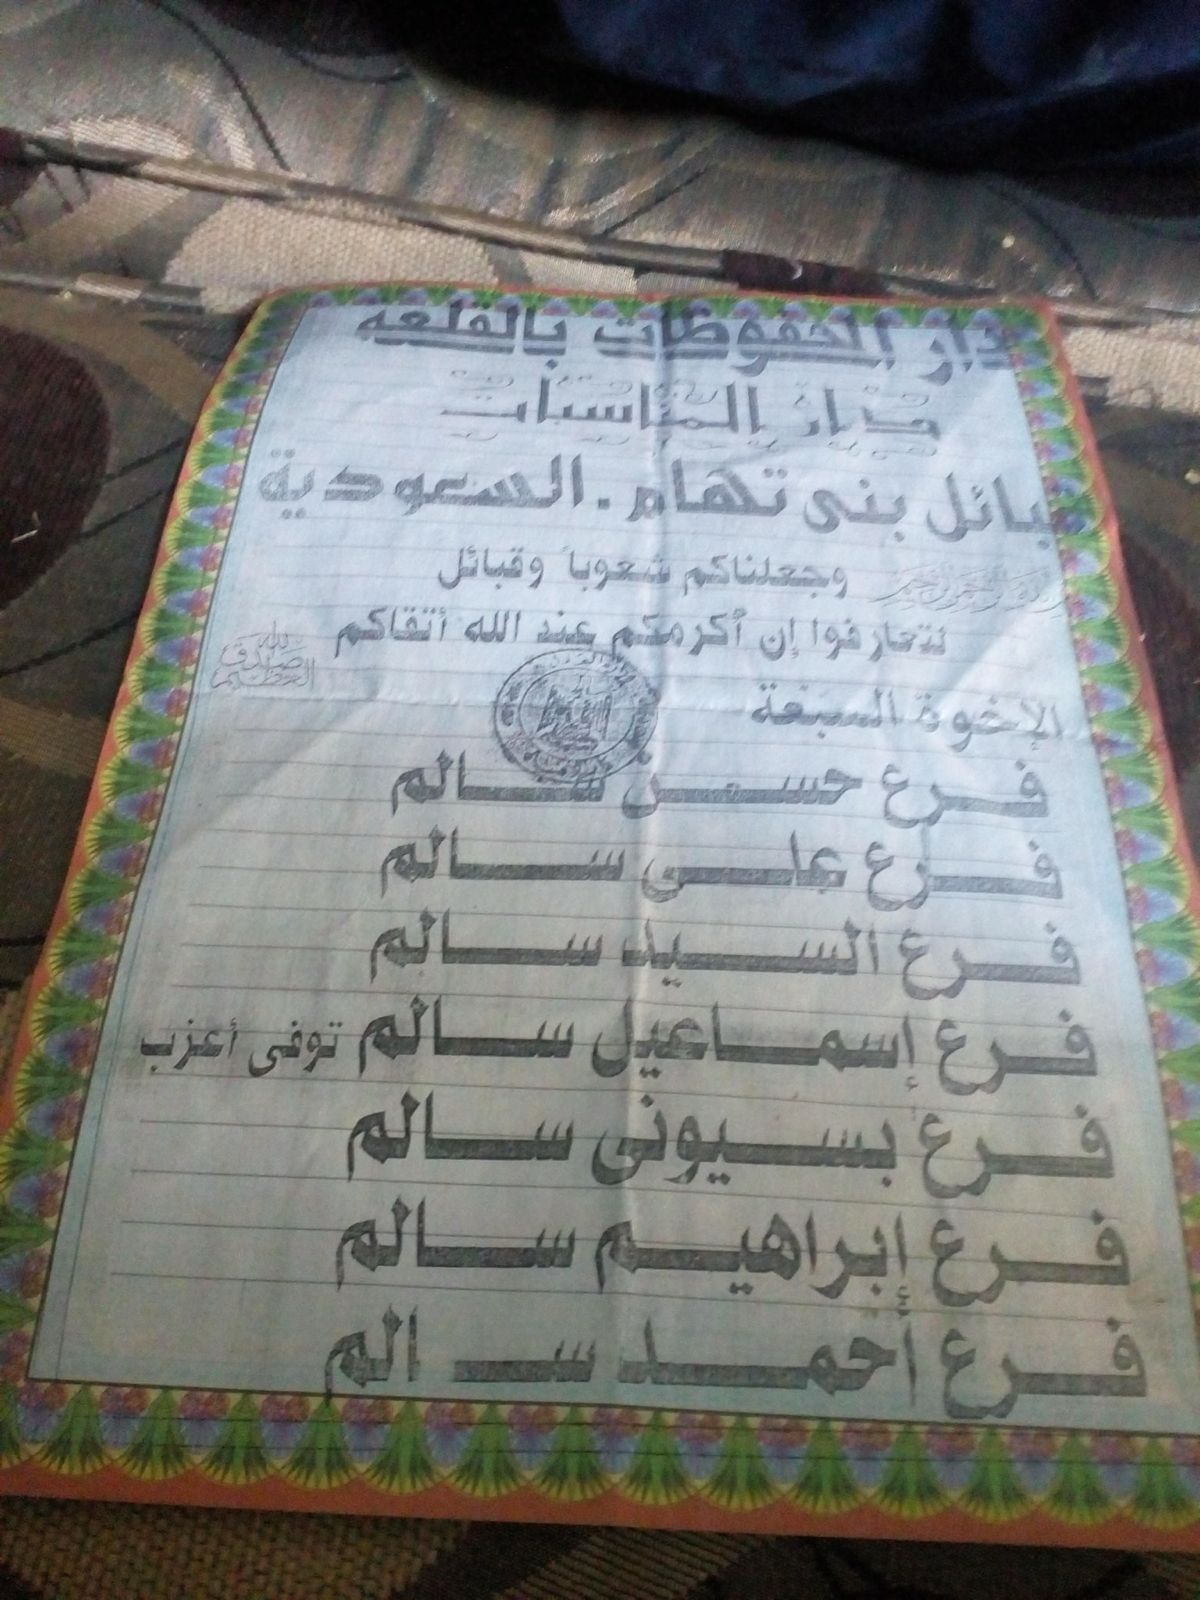 دار المحفوظات بالقلعه
دار المناسبات
قبائل بنى تهام . السعودية
وجعلناكم شعوباً وقبائل
لتعارفوا إن أكرمكم عند الله أتقاكم
صدق الله العظيم
الإخوة السبعة
فرع حسن سالم
فرع على سالم
فرع السيد سالم
فرع إسماعيل سالم توفى أعزب
فرع بسيونى سالم
فرع ابراهيم سالم
فرع أحمد سالم